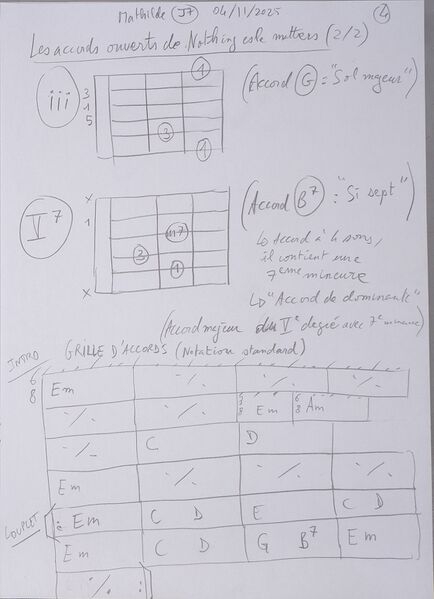 Mathilde J7 04/11/2025 4
Les accords ouverts de Nothing else matters (2/2)
iii
3
1
5
1
3
1
(Accord G = "Sol majeur")
V7
x
1
x
m7
3
1
(Accord B7 : "Si sept")
↳ Accord à 4 sons,
il contient une
7ème mineure
↳ "Accord de dominante"
(Accord majeur du Ve degré avec 7e mineure)
INTRO GRILLE D'ACCORDS (Notation standard)
6/8 Em ./. ./. ./.
./. ./. Em 6/8 Am
./. C D
Em ./. ./. ./.
COUPLET : Em C D E C D
Em C D G B7 Em
./. :